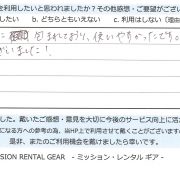 利用したいと思われましたか？その他感想・ご要望がござい
したい　b. どちらともいえない　c. 利用はしない〔理由
包まれており、使いやすかったです。
ざいました！
した。戴いたご感想・意見を大切に今後のサービス向上に活
になる方への参考の為、※HP上で利用させて戴くことがございます
是非、またのご利用機会を戴けましたら幸いです。
SION RENTAL GEAR - ミッション・レンタル ギア -